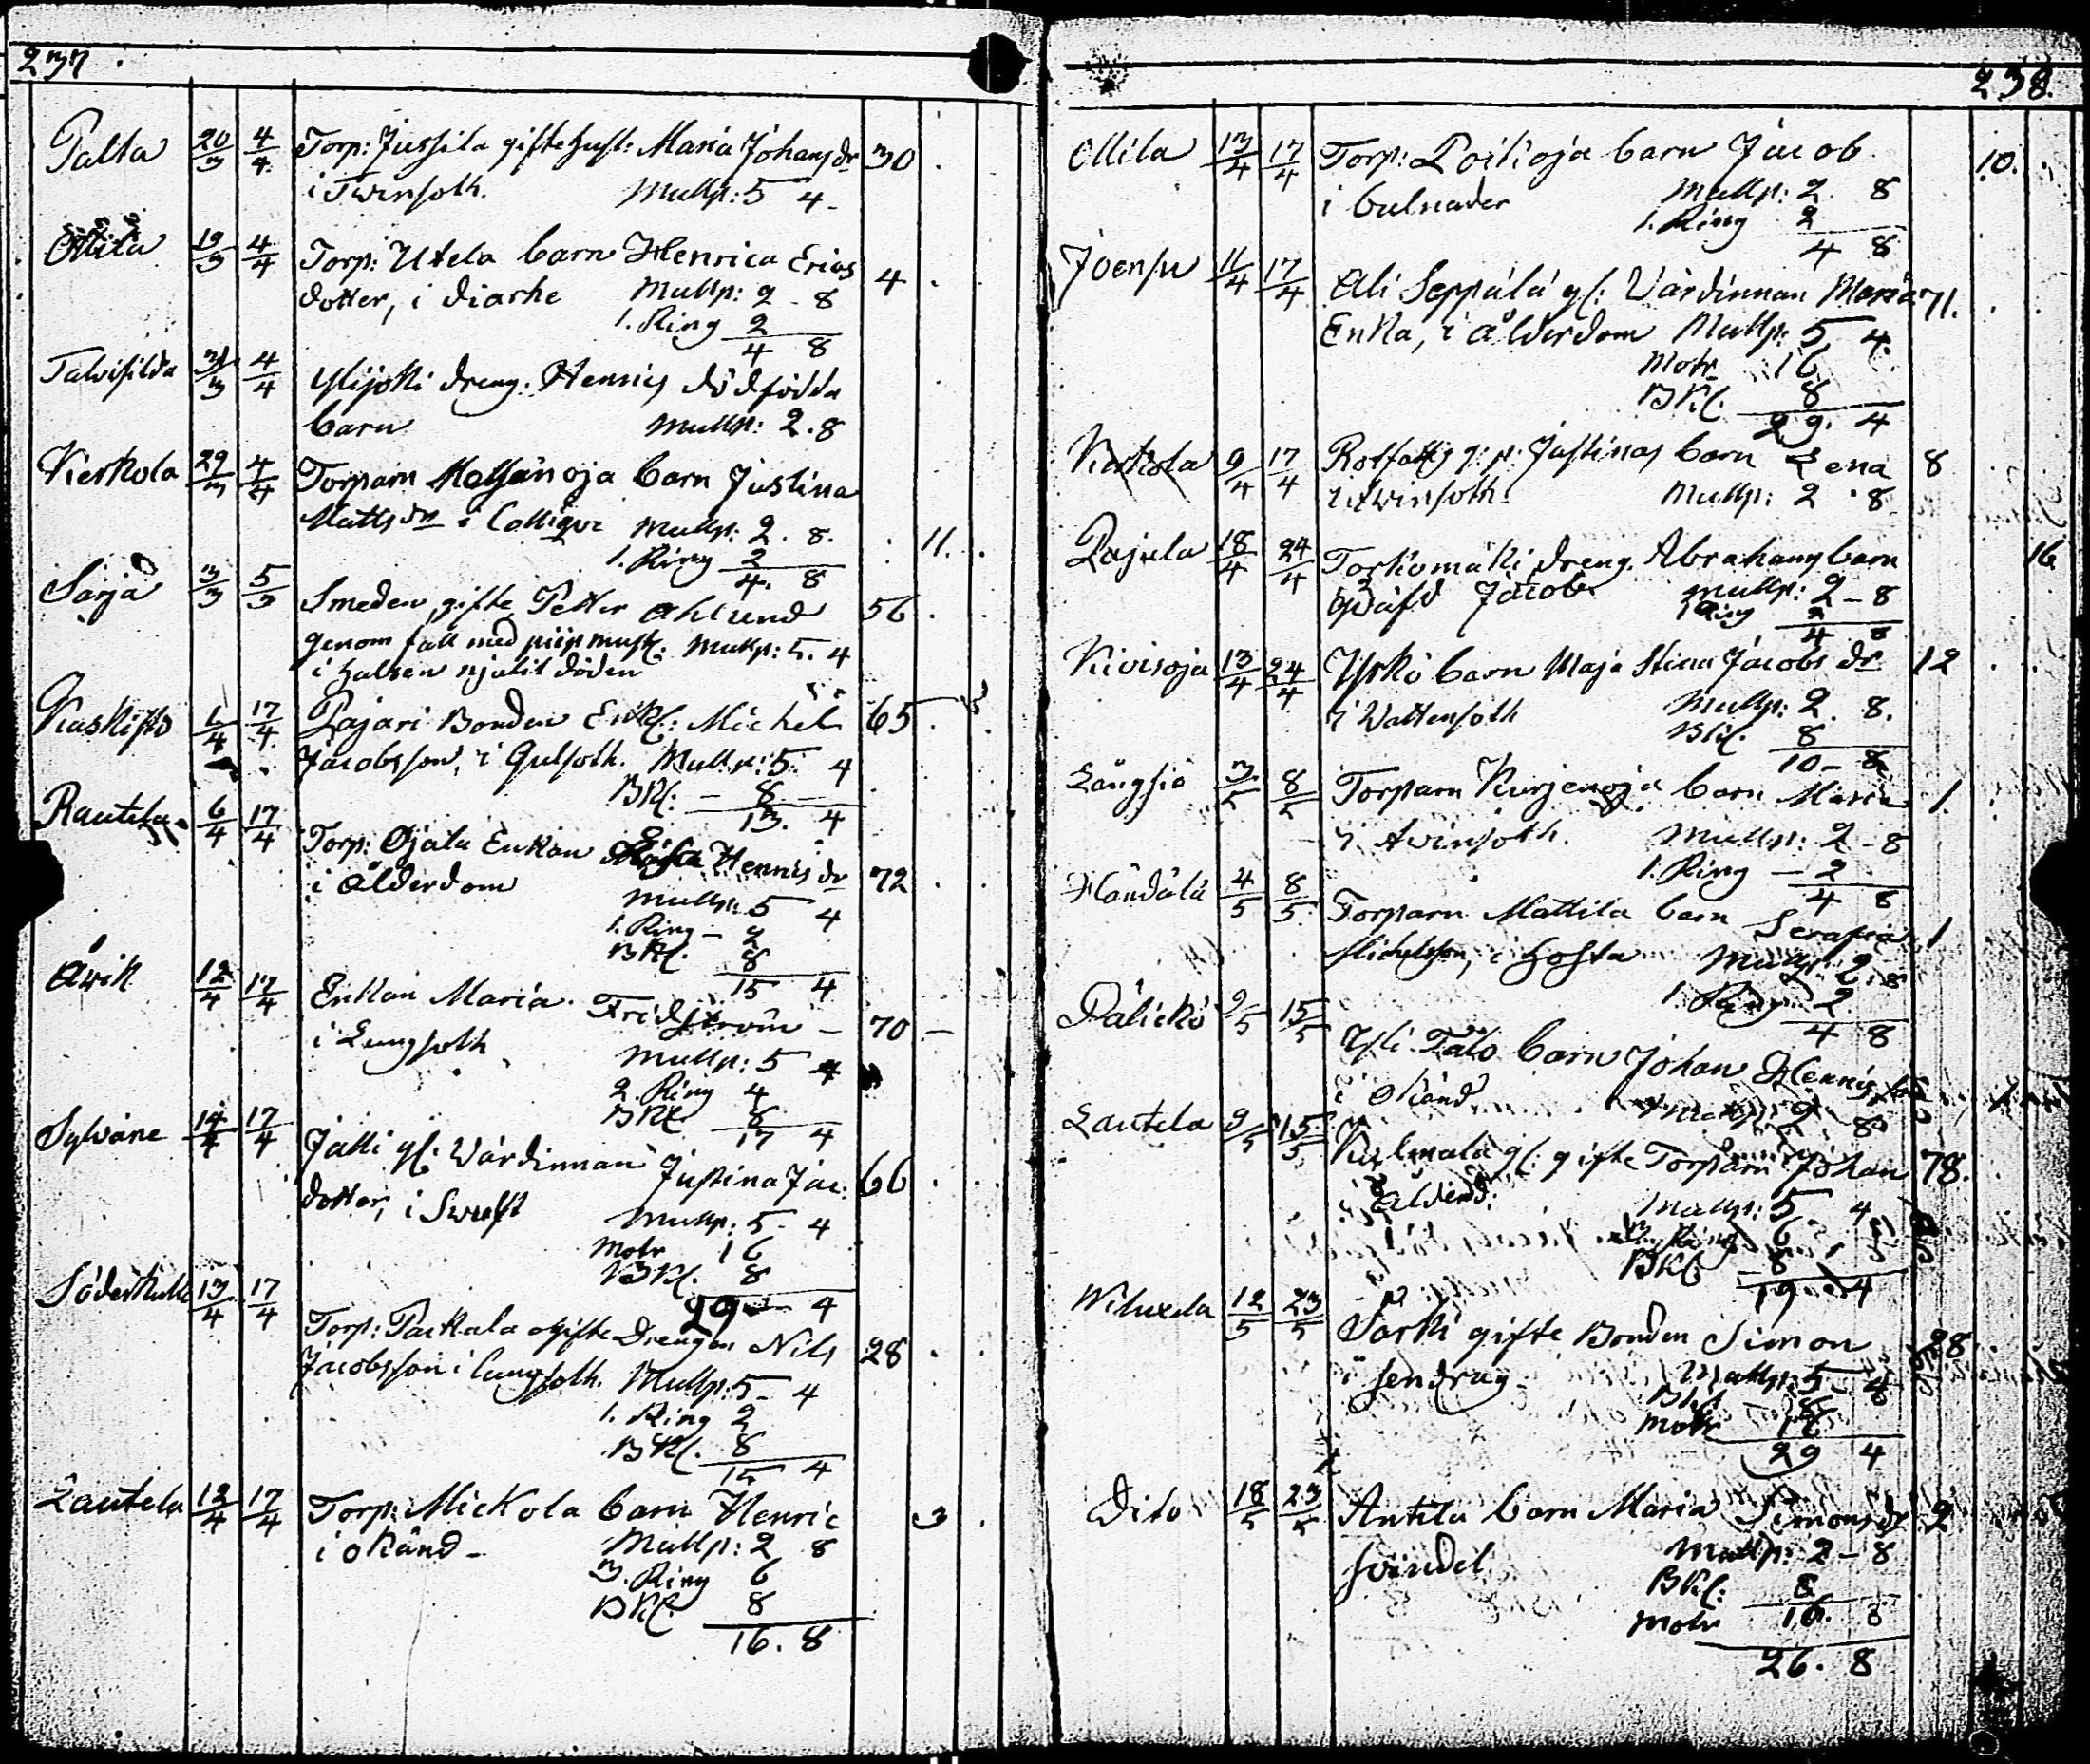 237.
Palta 20/3 4/4 Torp: Jussila gifte hust: Maria Johansdr 30
i Twinsoth. Mullp: 5 4
Ollila 19/3 4/4 Torp: Utela barn Henrica Erics 4
dotter, i diarhe Mullp: 2 - 8
1. Ring 2
4 8
Talvisilda 31/3 4/4 Ylijoki dreng. Henrics dödfödda
barn Mullp: 2. 8
Kierkola 29/3 4/4 Torparn Metsänoja barn Justina
Mattsdr i Collique Mullp: 2. 8. 11.
1. Ring 2
4. 8
Sarja 3/3 5/3 Smeden gifte Petter Ahlund 56
genom fall med piip musk: Mullp: 5. 4
i halsen njutit döden
Kaskisto 1/4 17/4 Pajari Bonden Enkl: Michel 65
Jacobsson, i Gulsoth. Mullp: 5. 4
BKl: - 8 -
13. 4
Rautila 6/4 17/4 Torp: Ojala Enkan Henricsdr 72
i Ålderdom
Mullp: 5 4
1. Ring - 2
BKl. 8
15 4
Åvik 12/4 17/4 Enkan Maria Fridström - 70 -
i Lungsoth
Mullp: 5 4
2. Ring 4
BKl. 8
17 4
Sylväne 14/4 17/4 Jalli gl: Värdinnan Justina Jac: 66
dotter, i Swulst
Mullp: 5 - 4
Motr 16
BKl. 8
29 - 4
Söderkulla 13/4 17/4 Torp: Parkala ogifte Drengen Nils 28
Jacobsson i lungsoth. Mullp: 5 - 4
1. Ring 2
BKl. 8
15 4
Lautela 12/4 17/4 Torp: Mickola barn Henric 3
i okänd - Mullp: 2 8
3. Ring 6
BKl. 8
16. 8
238.
Ollila 13/4 17/4 Torp: Poitioja barn Jacob 10.
i bulnader Mullp: 2. 8
1. Ring 2
4 8
Joensu 11/4 17/4 Ali Seppälä gl: Värdinnan Maria 71.
Enka, i ålderdom Mullp: 5 4.
Motr 16
BKl. 8
29. 4
Kerkola 9/4 17/4 Rotfattig q: p: Justinas barn Lena 8
i Twinsoth Mullp: 2. 8
Pajula 18/4 24/4 Torkomäki dreng. Abrahams barn 16
Jacob Mullp: 2 - 8
Ring 2
4 8
Kivisoja 13/4 24/4 Yrkö barn Maja Stina Jacobs dr 12
i Wattensoth Mullp: 2. 8.
BKl. 8
10 - 8
Längsiö 3/5 8/5 Torparn Kurjenoja barn Maria 1.
i Twinsoth. Mullp: 2 - 8
1. Ring - 2
4 8
Händälä 4/5 8/5 Torparn Mattila barn Serafia 1
Michelsson, i hosta Mullp: 2. 8
1. Ring 2
4 8
Pälickö 9/5 15/5 Yli Talo barn Johan Henrics
i okänd Mullp: 2 8
Lautela 9/5 15/5 Kulmala gl: gifte Torparn Johan 78.
i Ålderd: Mullp: 5 4
3. Ring 6
BKl 8
19 - 4
Wiluxela 12/5 23/5 Sorki gifte Bonden Simon 28
i sendrag Mullp: 5 - 4
BKl 8
Motr 16
29 4
Dito 18/5 23/5 Antila barn Maria Simonsdr 2
svindel Mullp: 2 - 8
BKl: 8
Motr 16. 8
26. 8